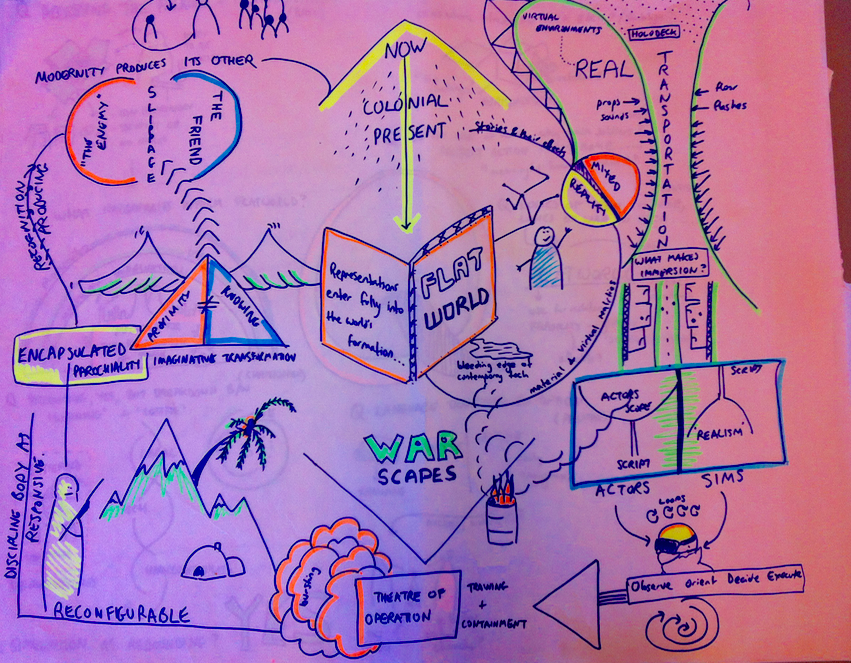 MODERNITY PRODUCES ITS OTHER
"THE ENEMY"
SLIPPAGE
THE FRIEND
RECOGNITION
PRODUCING
NOW
COLONIAL
PRESENT
Stories & their effects
VIRTUAL
ENVIRONMENTS
REAL
HOLODECK
TRANSPORTATION
props
sounds
Row
Pushes
MIXED
REALITY
WHAT MAKES
IMMERSION?
PROXIMITY
≠
KNOWING
IMAGINATIVE TRANSFORMATION
Representations
enter fully into
the world's
formation...
FLAT
WORLD
bleeding edge of
contempory tech
material & virtual matches
ENCAPSULATED
PAROCHIALITY
ACTORS
SCOPE
SCRIPT
SCRIPT
REALISM
ACTORS
SIMS
WAR
SCAPES
DISCIPLINE BODY AS
RESPONSIVE.
RECONFIGURABLE
bursting
THEATRE OF
OPERATION
TRAINING
+
CONTAINMENT
LOOPS
Observe Orient Decide Execute